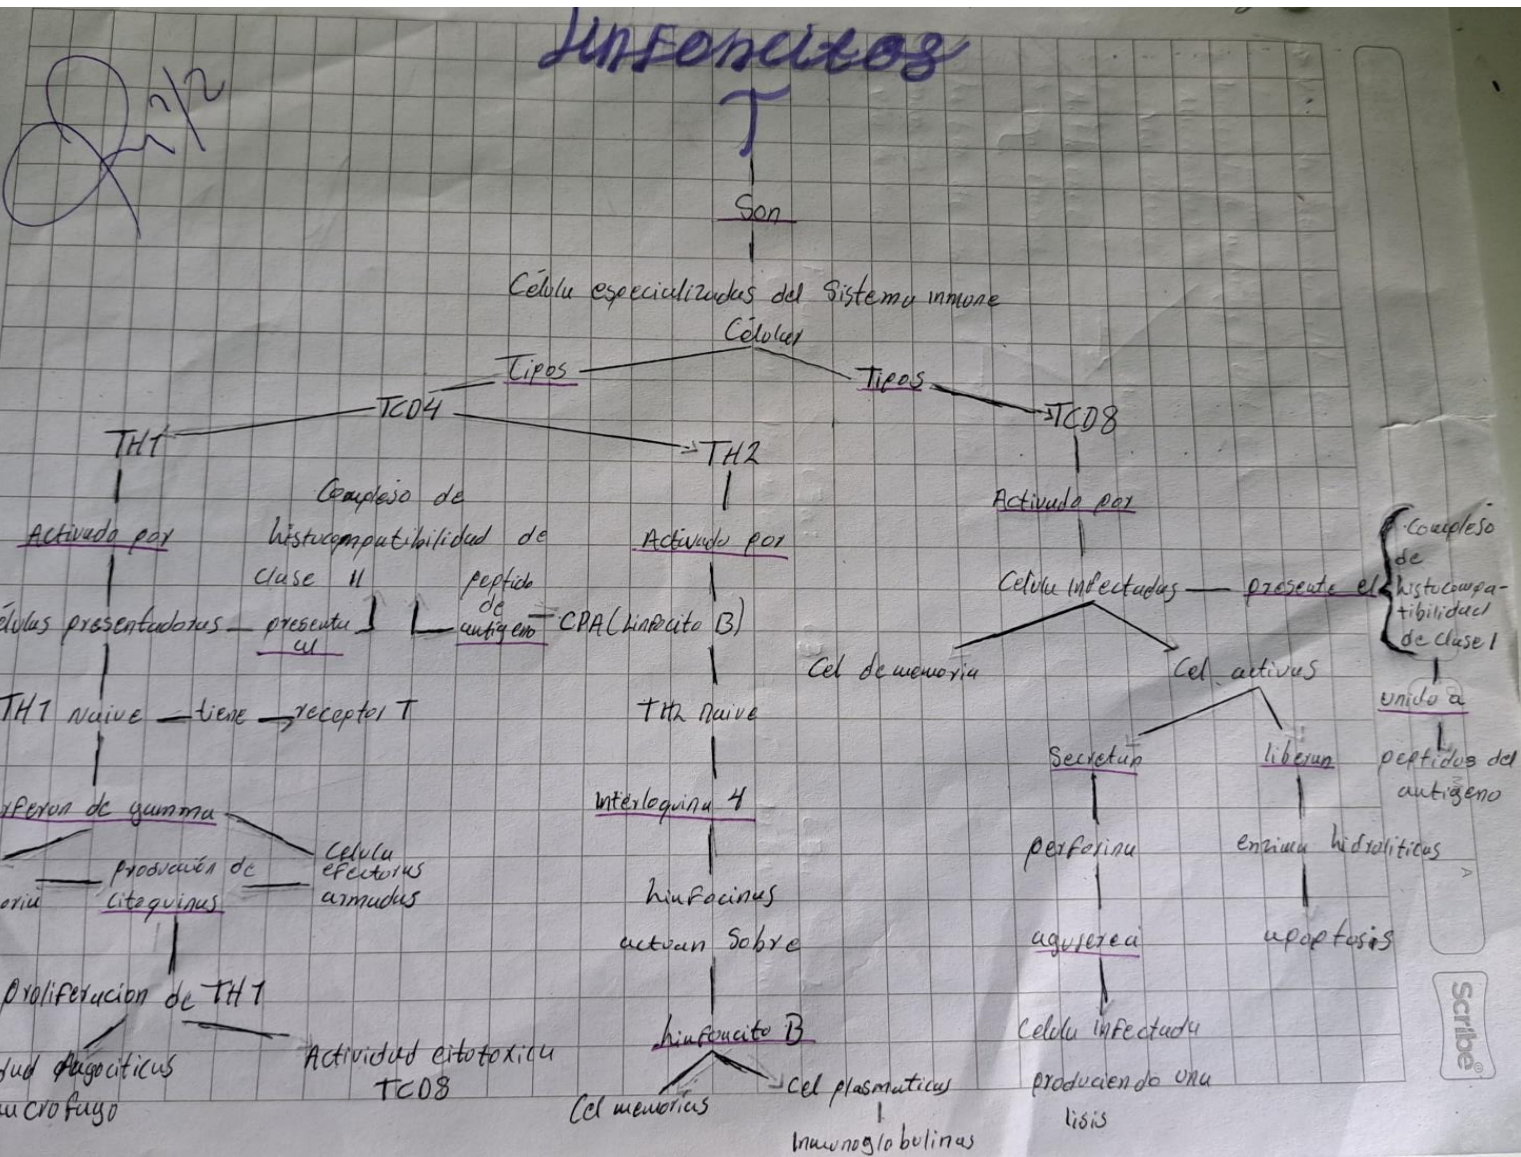 Linfoncitos
T
2/2
Son
Célula especializadas del Sistema inmune
Célular
Tipos
Tipos
TCD4
TCD8
TH1
TH2
Activado por
Complejo de
histocompatibilidad de
clase II
peptido
de
antigeno
Activado por
Activado por
élulas presentadoras
presenta
al
CPA (Linfocito B)
Celula infectadas
presente el
Complejo
de
histocompa-
tibilidad
de clase I
Cel de memoria
Cel activas
unido a
TH1 Naive
tiene
receptor T
TH2 Naive
Secretan
liberan
peptidos del
antigeno
rferon de gamma
Interloquina 4
perforina
enzima hidroliticas
oria
producción de
citoquinas
Celula
efectoras
armadas
linfocinas
actuan Sobre
agujerea
apoptosis
Proliferacion de TH1
Linfoncito B
Celula infectada
produciendo una
lisis
dad fagociticas
acrofago
Actividad citotoxica
TCD8
Cel memorias
Cel plasmaticas
Inmunoglobulinas
A
Scribe®